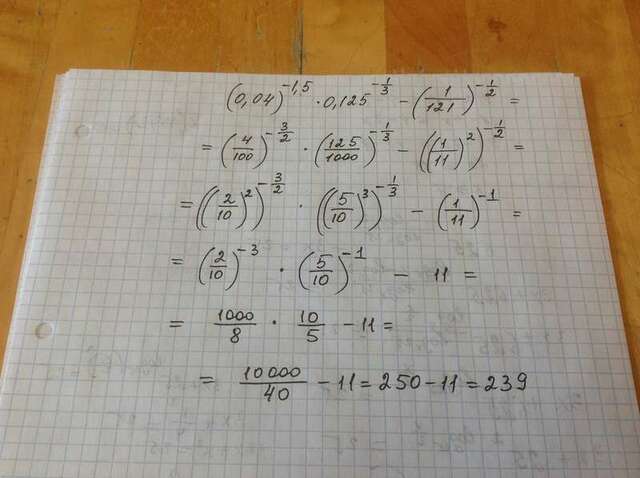 (0,04)^{-1,5} · 0,125^{-\frac{1}{3}} - (\frac{1}{121})^{-\frac{1}{2}} =
= (\frac{4}{100})^{-\frac{3}{2}} · (\frac{125}{1000})^{-\frac{1}{3}} - ((\frac{1}{11})^2)^{-\frac{1}{2}} =
= ((\frac{2}{10})^2)^{-\frac{3}{2}} · ((\frac{5}{10})^3)^{-\frac{1}{3}} - (\frac{1}{11})^{-1} =
= (\frac{2}{10})^{-3} · (\frac{5}{10})^{-1} - 11 =
= \frac{1000}{8} · \frac{10}{5} - 11 =
= \frac{10000}{40} - 11 = 250 - 11 = 239